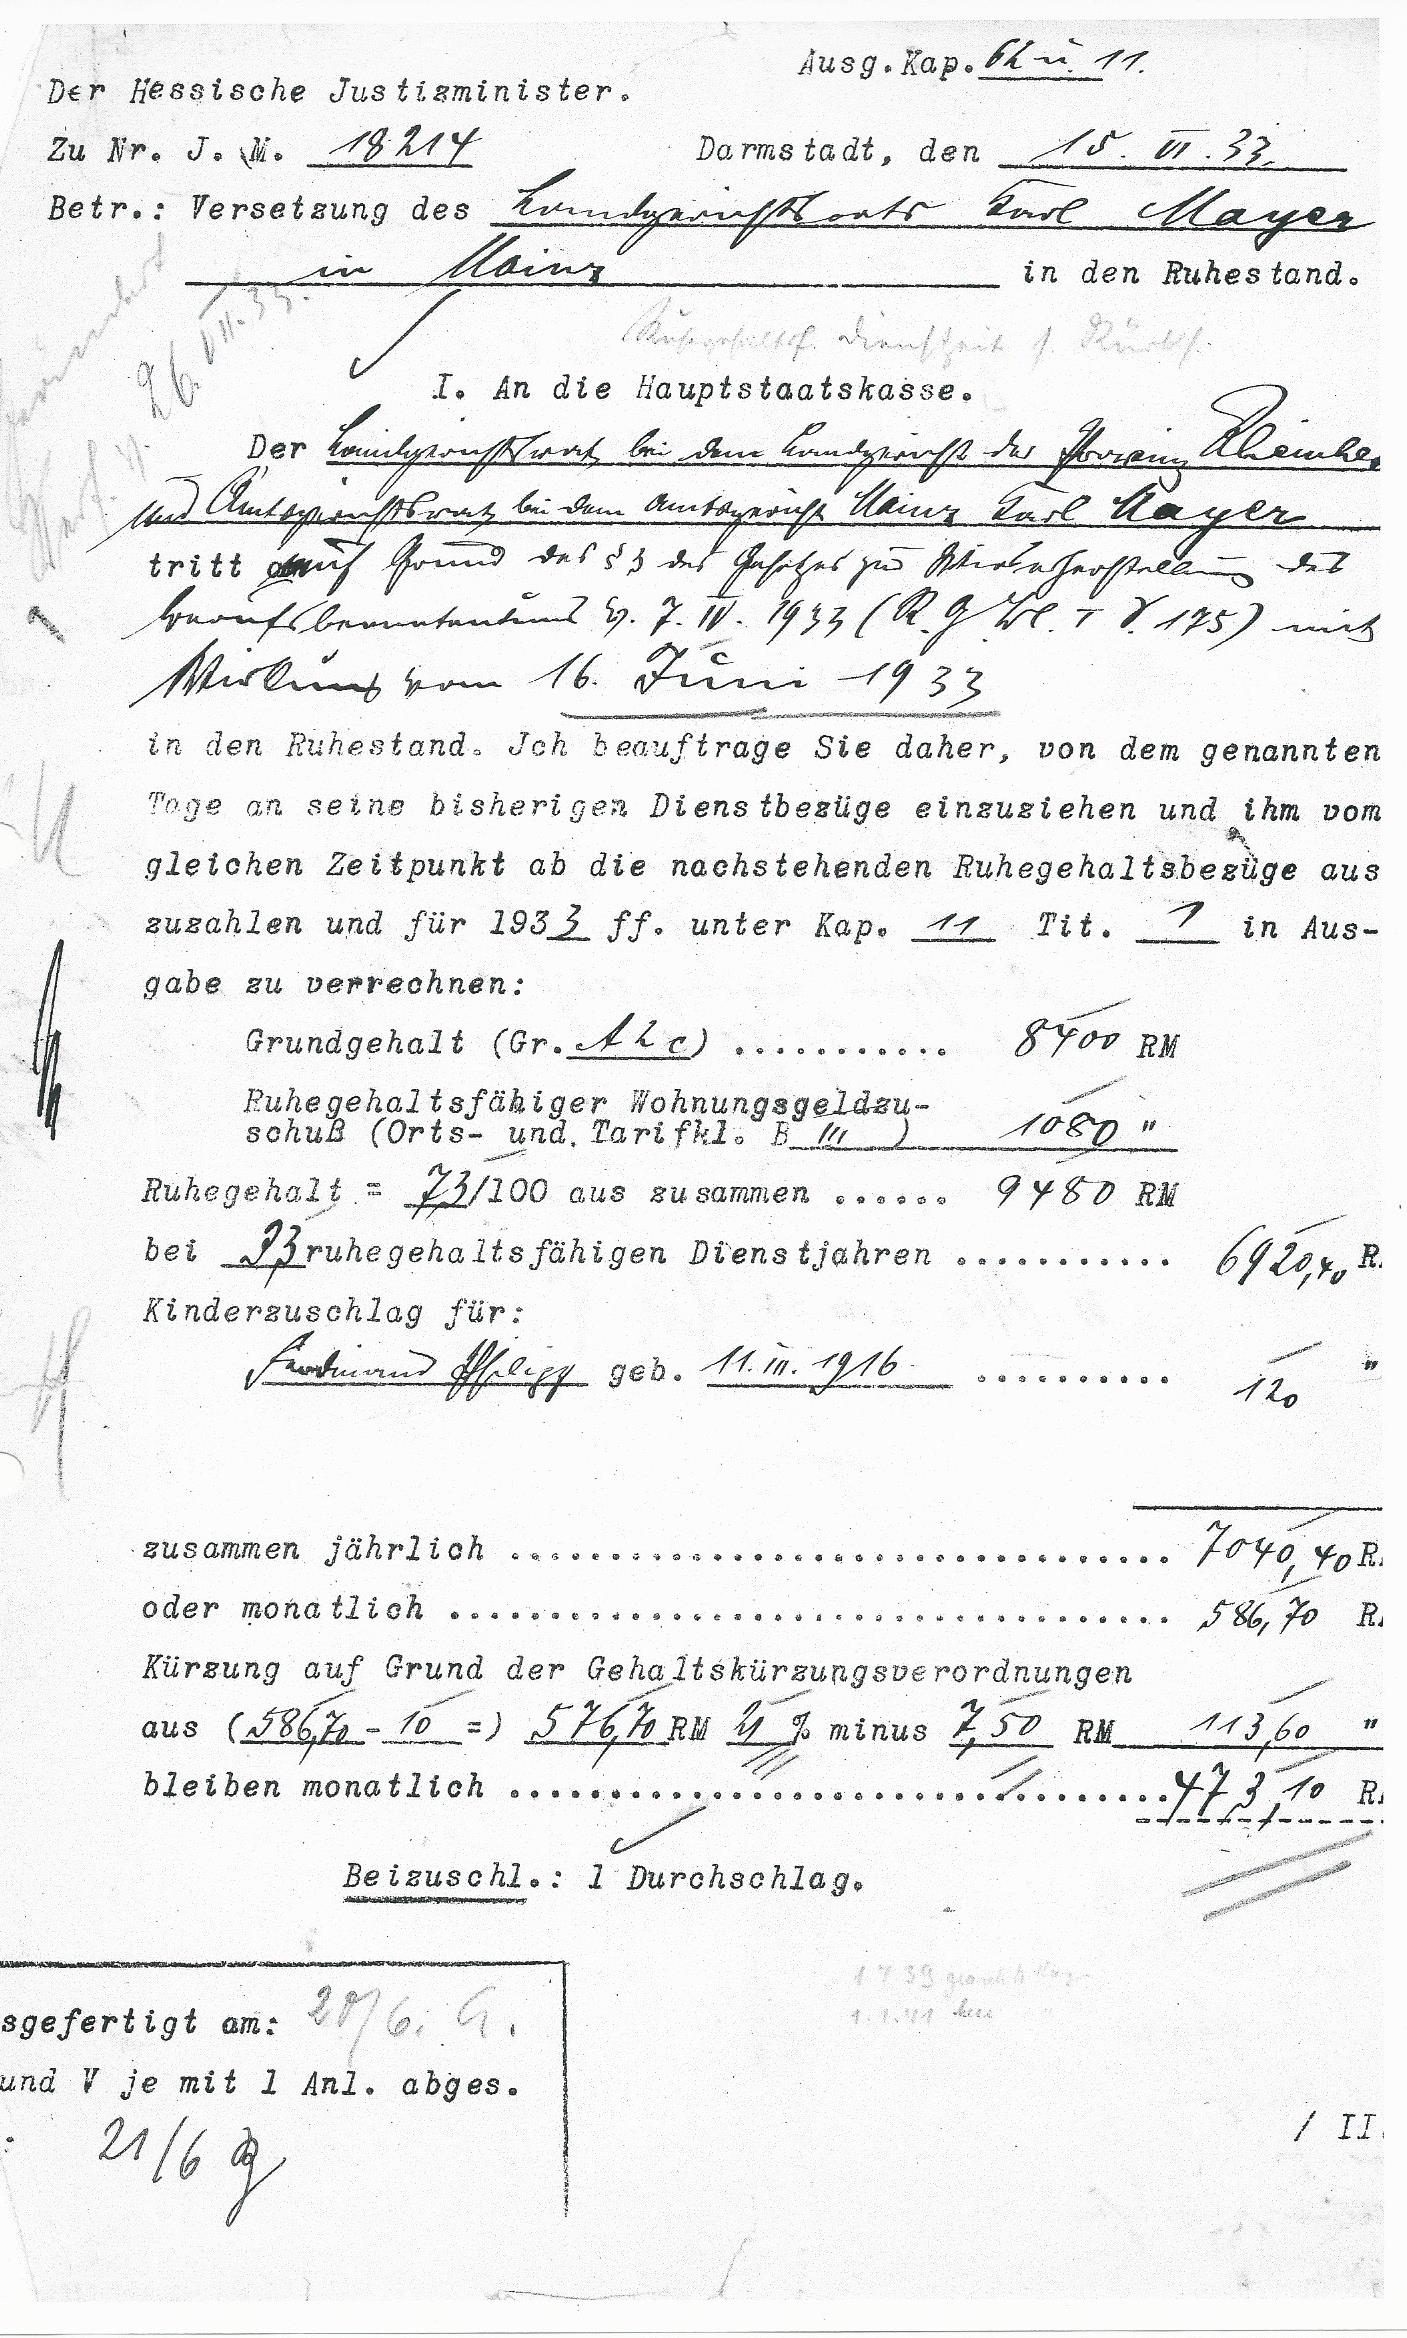 Ausg.Kap. 62 u. 11.
Der Hessische Justizminister.
Zu Nr. J. M. 18214 Darmstadt, den 15. VI. 33.
Betr.: Versetzung des Landgerichtsrats Karl Mayer
in Mainz in den Ruhestand.
26. VII. 33.
Ruhegehaltsf. Dienstzeit s. Rücks.
I. An die Hauptstaatskasse.
Der Landgerichtsrat bei dem Landgericht der Provinz Rheinhe
und Amtsgerichtsrat bei dem Amtsgericht Mainz Karl Mayer
tritt auf Grund des § 3 des Gesetzes zur Wiederherstellung des
Berufsbeamtentums v. 7. IV. 1933 (R. G. Bl. I S. 175) mit
Wirkung vom 16. Juni 1933
in den Ruhestand. Ich beauftrage Sie daher, von dem genannten
Tage an seine bisherigen Dienstbezüge einzuziehen und ihm vom
gleichen Zeitpunkt ab die nachstehenden Ruhegehaltsbezüge aus
zuzahlen und für 1933 ff. unter Kap. 11 Tit. 1 in Aus-
gabe zu verrechnen:
Grundgehalt (Gr. A 2 c) ........... 8400 RM
Ruhegehaltsfähiger Wohnungsgeldzu-
schuß (Orts- und Tarifkl. B III ) 1080 "
Ruhegehalt = 73/100 aus zusammen ...... 9480 RM
bei 33 ruhegehaltsfähigen Dienstjahren ........... 6920,40 R
Kinderzuschlag für:
Ferdinand Philipp geb. 11. III. 1916 .......... 120 "
zusammen jährlich ................................. 7040,40 R
oder monatlich .................................... 586,70 R
Kürzung auf Grund der Gehaltskürzungsverordnungen
aus (586,70 - 10 =) 576,70 RM 21 % minus 7,50 RM 113,60 "
bleiben monatlich ................................. 473,10 R
Beizuschl.: 1 Durchschlag.
sgefertigt am: 20/6. G.
und V je mit 1 Anl. abges.
: 21/6
/ II.